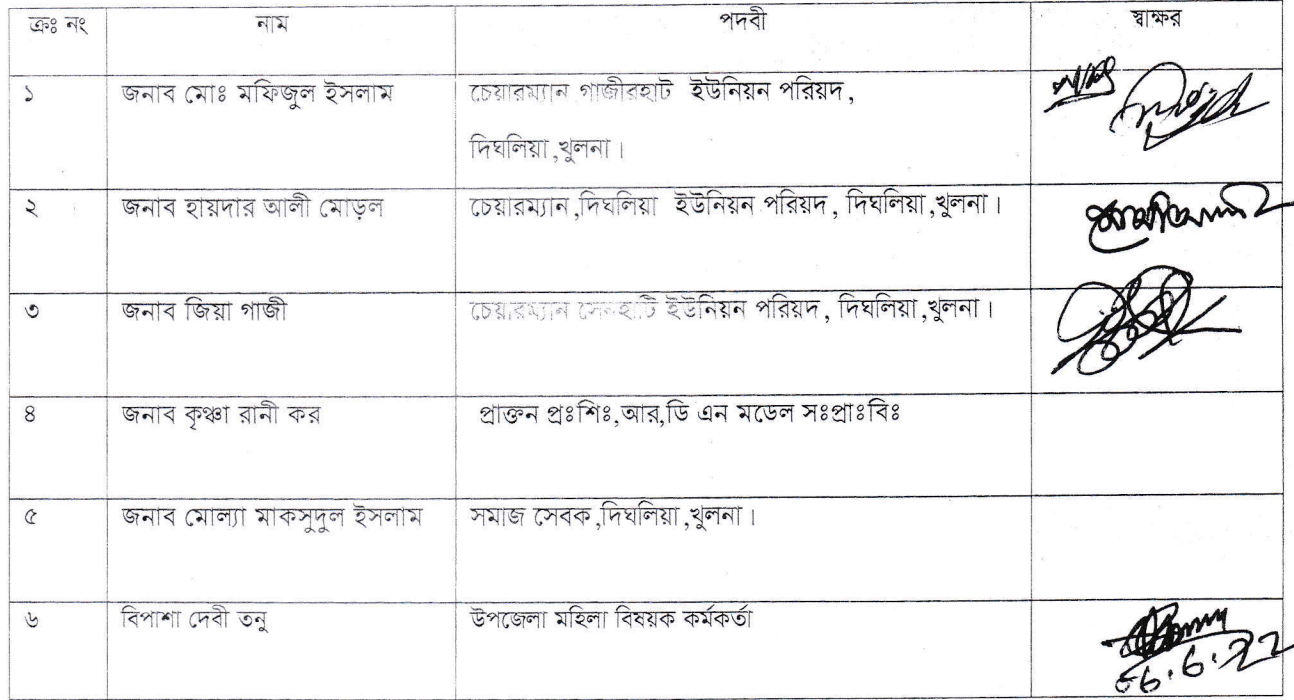 ক্রঃ নং নাম পদবী স্বাক্ষর
১ জনাব মোঃ মফিজুল ইসলাম চেয়ারম্যান গাজীরহাট ইউনিয়ন পরিয়দ,
দিঘলিয়া,খুলনা।
২ জনাব হায়দার আলী মোড়ল চেয়ারম্যান,দিঘলিয়া ইউনিয়ন পরিয়দ, দিঘলিয়া,খুলনা।
৩ জনাব জিয়া গাজী চেয়ারম্যান সেনহাটি ইউনিয়ন পরিয়দ, দিঘলিয়া,খুলনা।
৪ জনাব কৃষ্ণা রানী কর প্রাক্তন প্রঃশিঃ,আর,ডি এন মডেল সঃপ্রাঃবিঃ
৫ জনাব মোল্যা মাকসুদুল ইসলাম সমাজ সেবক,দিঘলিয়া,খুলনা।
৬ বিপাশা দেবী তনু উপজেলা মহিলা বিষয়ক কর্মকর্তা